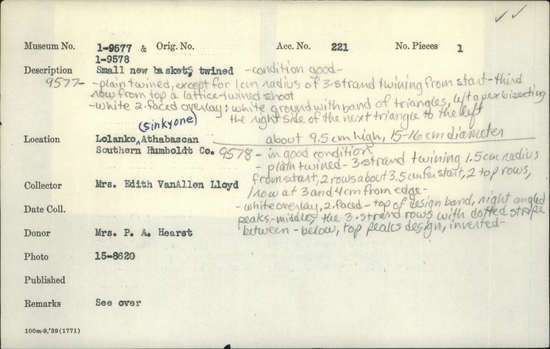 Museum No. 1-9577 & 1-9578 Orig. No. Acc. No. 221 No. Pieces 1
Description Small new basket, twined -condition good-
9577 - plain twined, except for 1cm radius of 3-strand twining from start - third
row from top a lattice-twined shoot
-white 2-faced overlay; white ground with band of triangles, left apex bisecting
the right side of the next triangle to the left
(Sinkyone)
about 9.5 cm high, 15-16 cm diameter
Location Lolanko, Athabascan
Southern Humboldt Co. 9578 - in good condition
- plain twined - 3-strand twining 1.5cm radius
from start, 2 rows about 3.5 cm fr. start, 2 top rows,
1 row at 3 and 4cm from edge -
Collector Mrs. Edith VanAllen Lloyd
Date Coll. -white overlay, 2-faced - top of design band, right angled
peaks - middle, the 3-strand rows with dotted stripe
between - below, top peaks design, inverted -
Donor Mrs. P. A. Hearst
Photo 15-8620
Published
Remarks See over
100m-9,'39(1771)